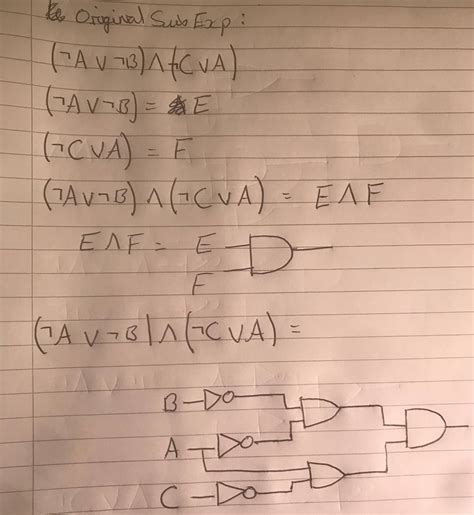 Original Sub Exp:
(¬A∨¬B)∧(¬C∨A)
(¬A∨¬B) = E
(¬C∨A) = F
(¬A∨¬B)∧(¬C∨A) = E∧F
E∧F = E
F
(¬A∨¬B)∧(¬C∨A) =
B
A
C